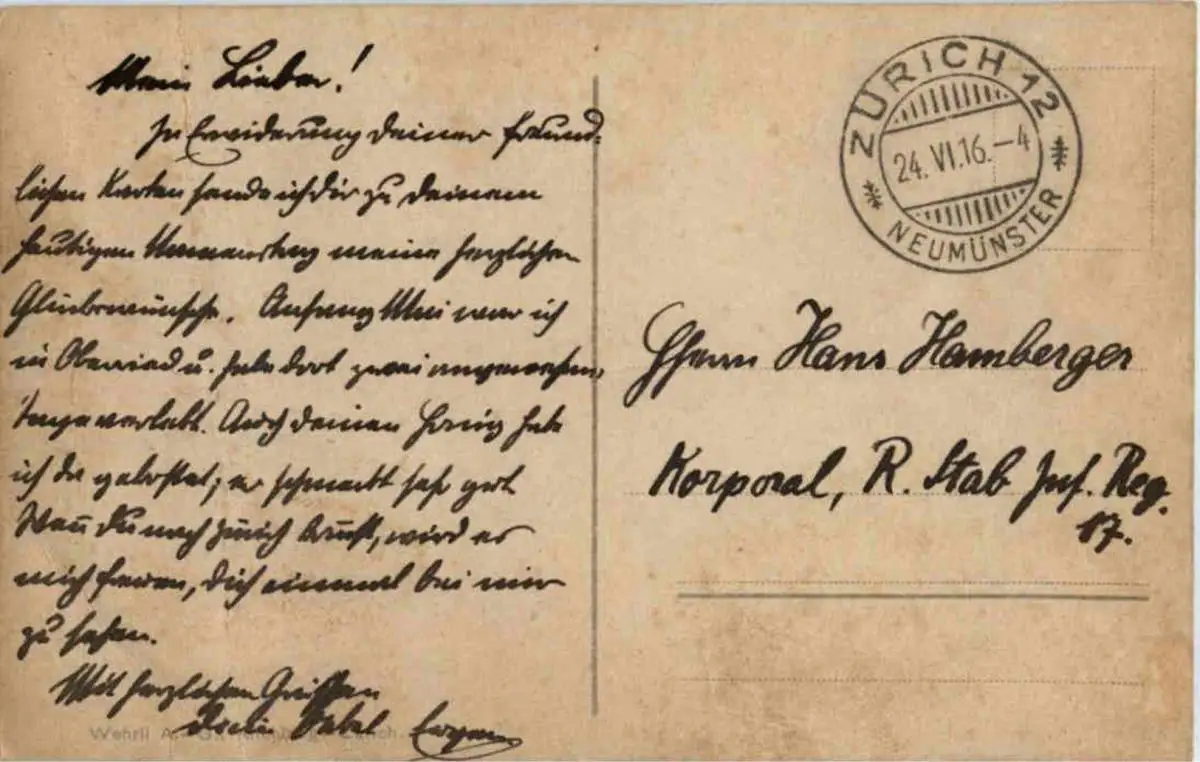 Mein Lieber!
In Erwiderung deiner freund-
lichen Karten sende ich Dir zu deinem
heutigen Namenstag meine herzlichen
Glückwünsche. Anfang Mai war ich
in Oberried u. habe dort zwei
Tage verlebt. Auch deinen Honig habe
ich da gekostet; er schmeckt sehr gut.
Wenn Du nach Zürich kommst, wird es
mich freuen, Dich einmal bei mir
zu sehen.
Mit herzlichen Grüssen
Dein Vetter Eugen
Wehrli A.-G.
ZÜRICH 12
24. VI. 16. – 4
NEUMÜNSTER
Herrn Hans Hamberger
Korporal, R. Stab Inf. Reg.
17.